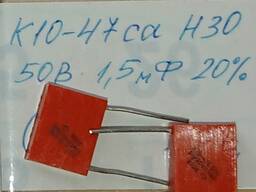 К10-47са Н30
50В 1,5мФ 20%